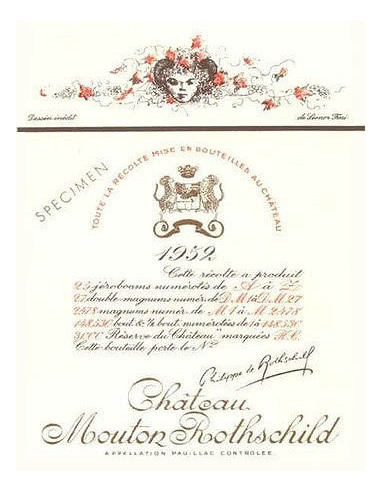 Dessin inédit
de Leonor Fini
SPECIMEN
TOUTE LA RÉCOLTE MISE EN BOUTEILLES AU CHÂTEAU
1952
Cette récolte a produit
25 jeroboams numérotés de A à Z
27 double-magnums numér. de D M 1 à D M 27
2478 magnums numér. de M 1 à M 2478
148.530 bout. & ½ bout. numérotées de 1 à 148.530
3000 Réserve du Château marquées R.C.
Cette bouteille porte le Nº
Philippe de Rothschild
Château
Mouton Rothschild
APPELLATION PAUILLAC CONTRÔLÉE